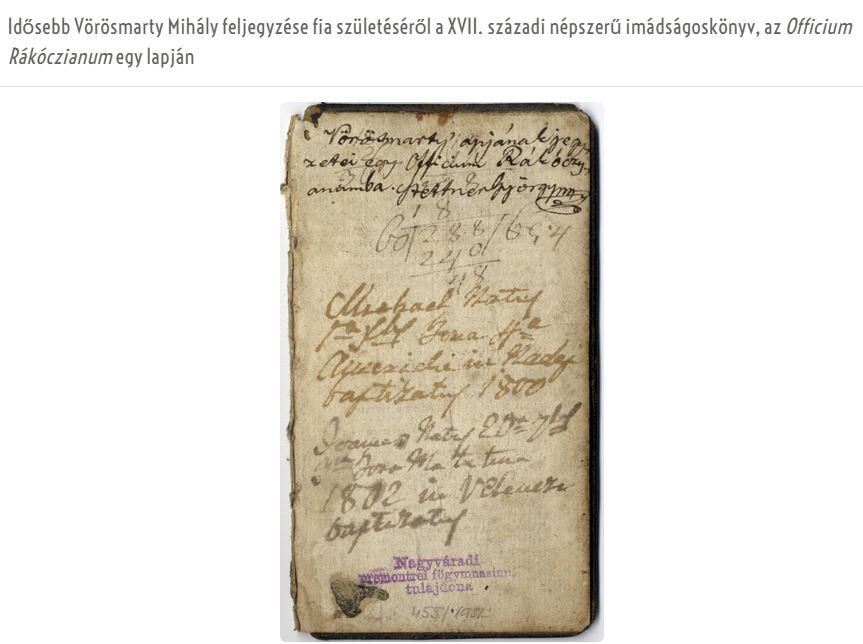 Idősebb Vörösmarty Mihály feljegyzése fia születéséről a XVII. századi népszerű imádságoskönyv, az Officium
Rákóczianum egy lapján
Vörösmarty apjának jegy-
zetei egy Officium Rákóczy-
anumba.
18
60 288
240
48
Michael Natus
1a Hora 4a
in Nadap
baptizatus 1800
Joannes Natus
Hora Matutina
1802 in Velencze
baptizatus
Nagyváradi
premontrei főgymnasium
tulajdona